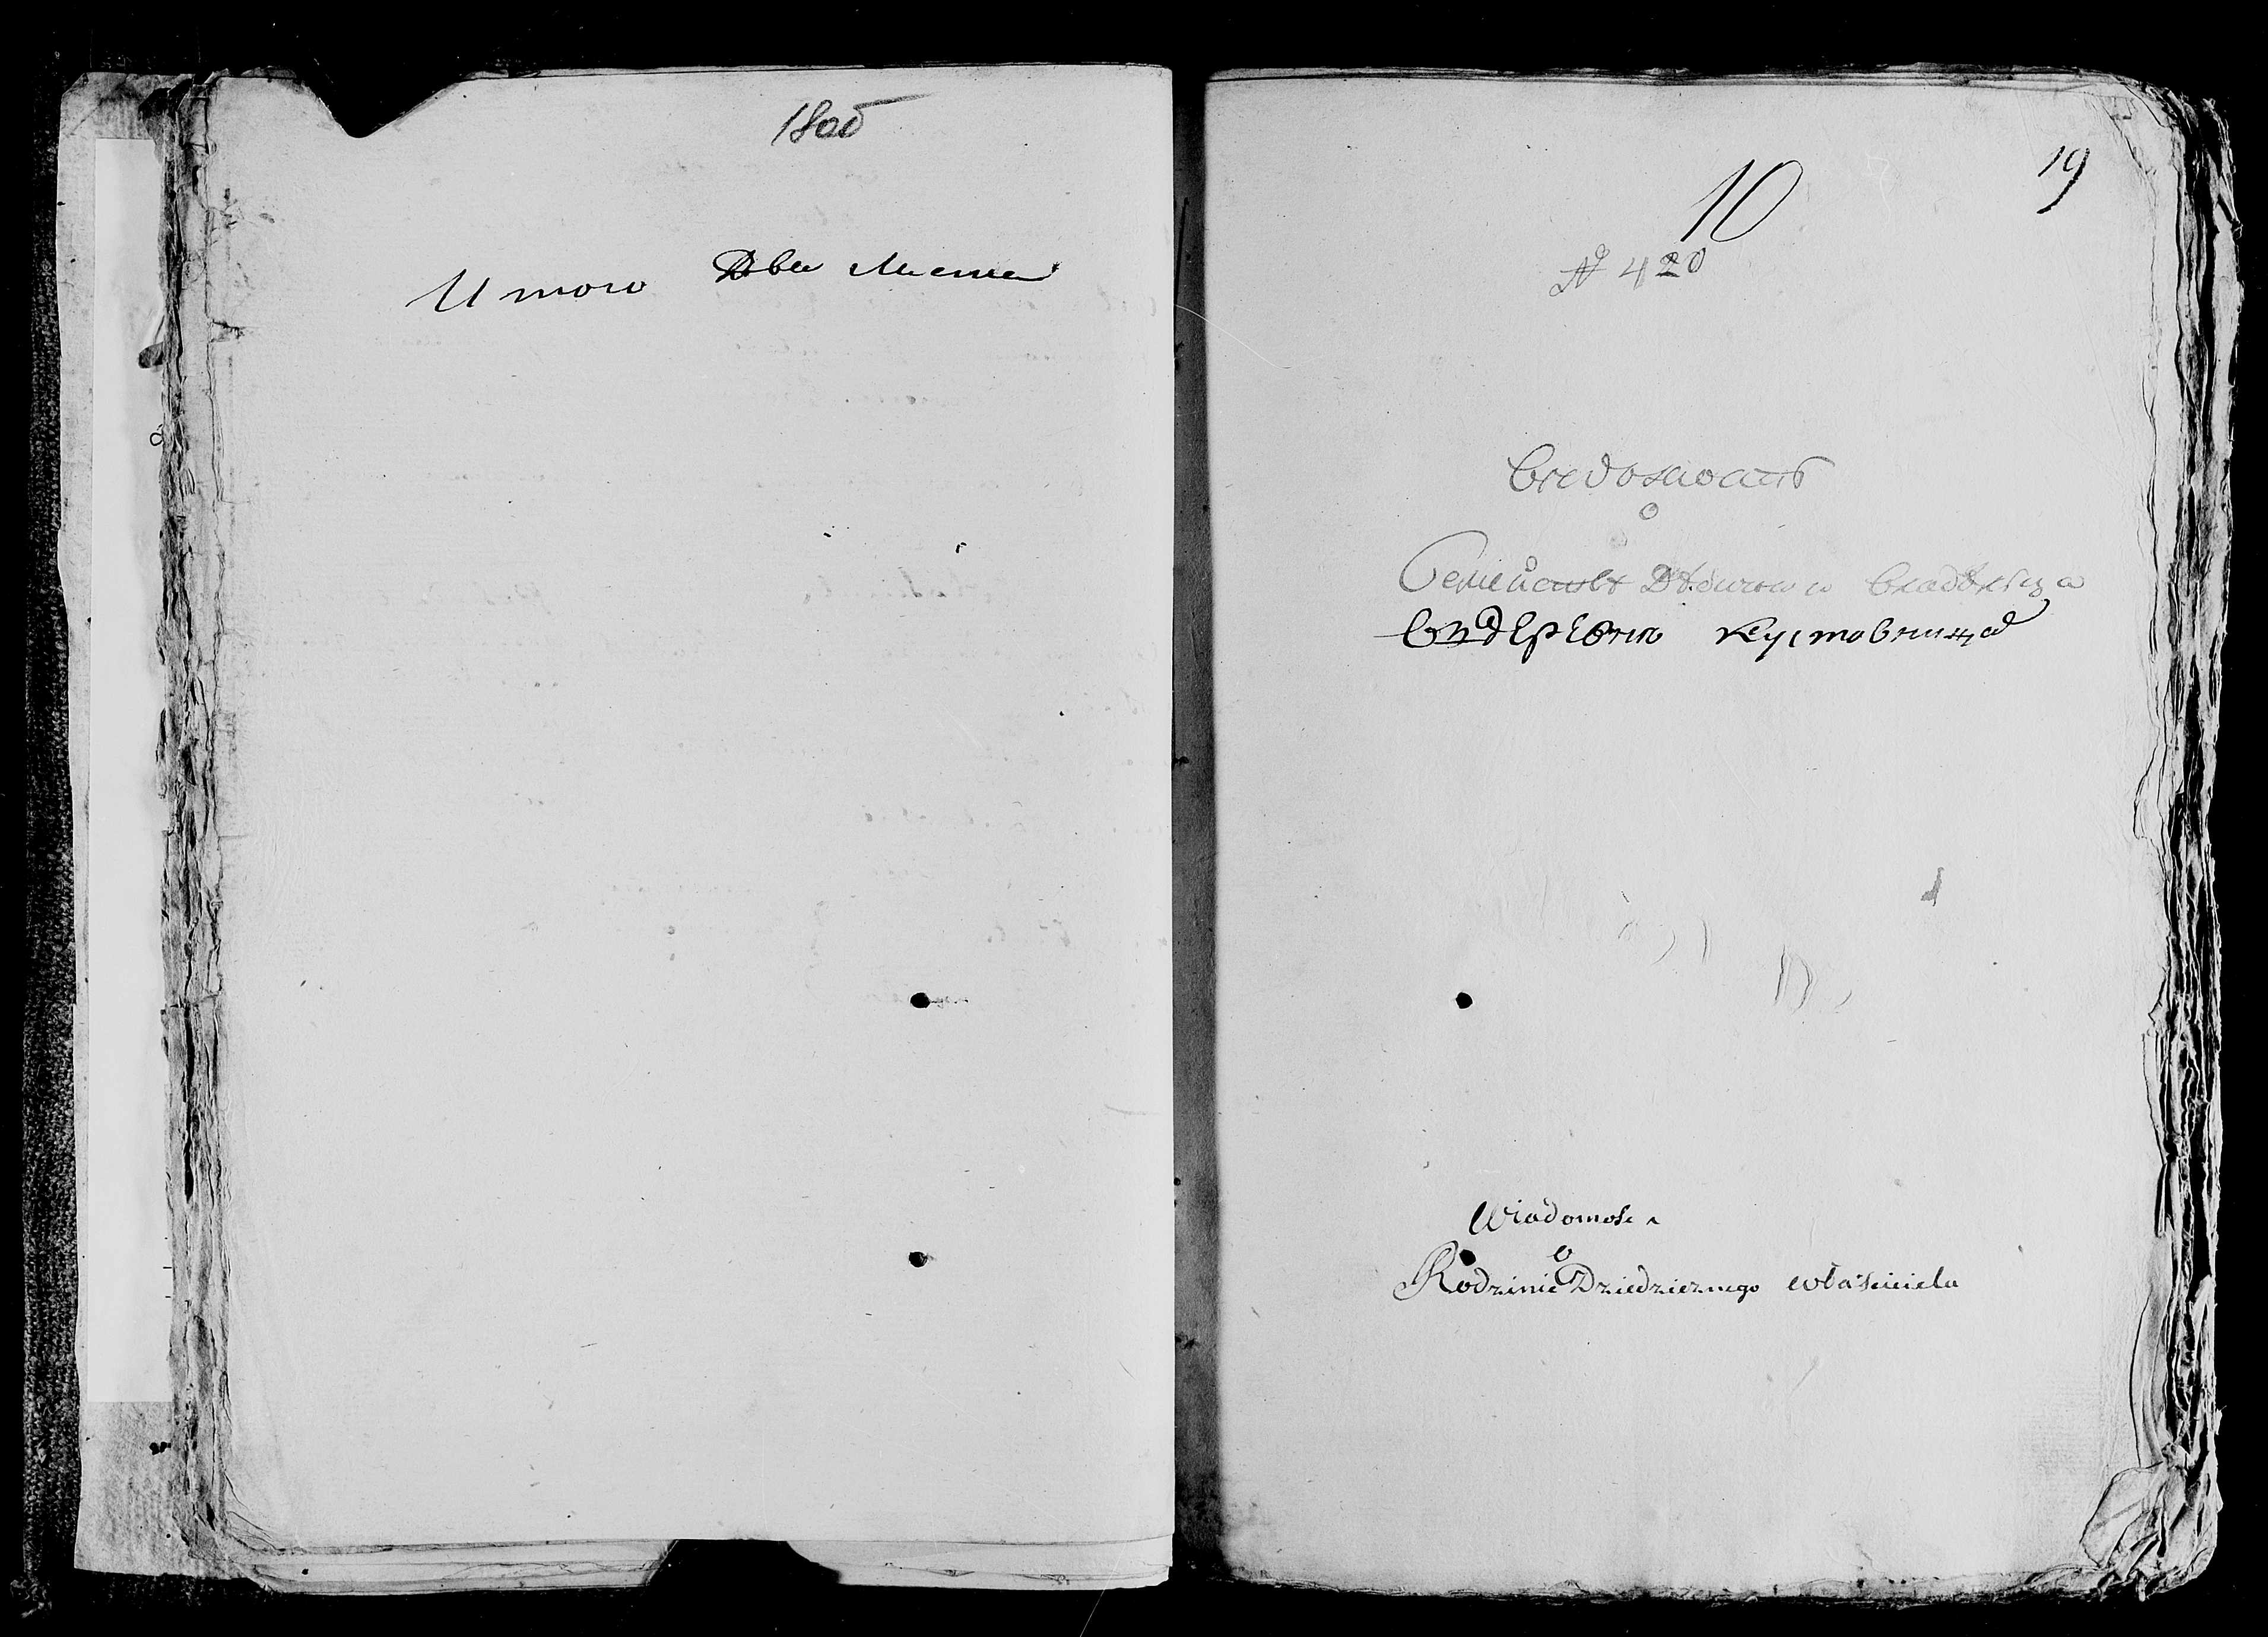 1805
Итого Два листа
19
10
№ 420
Ведомость
о
Семействе Дѣдичнаго Владѣльца
Въ деревни Кустовница
Wiadomość
o
Rodzinie Dziedzicznego właściciela